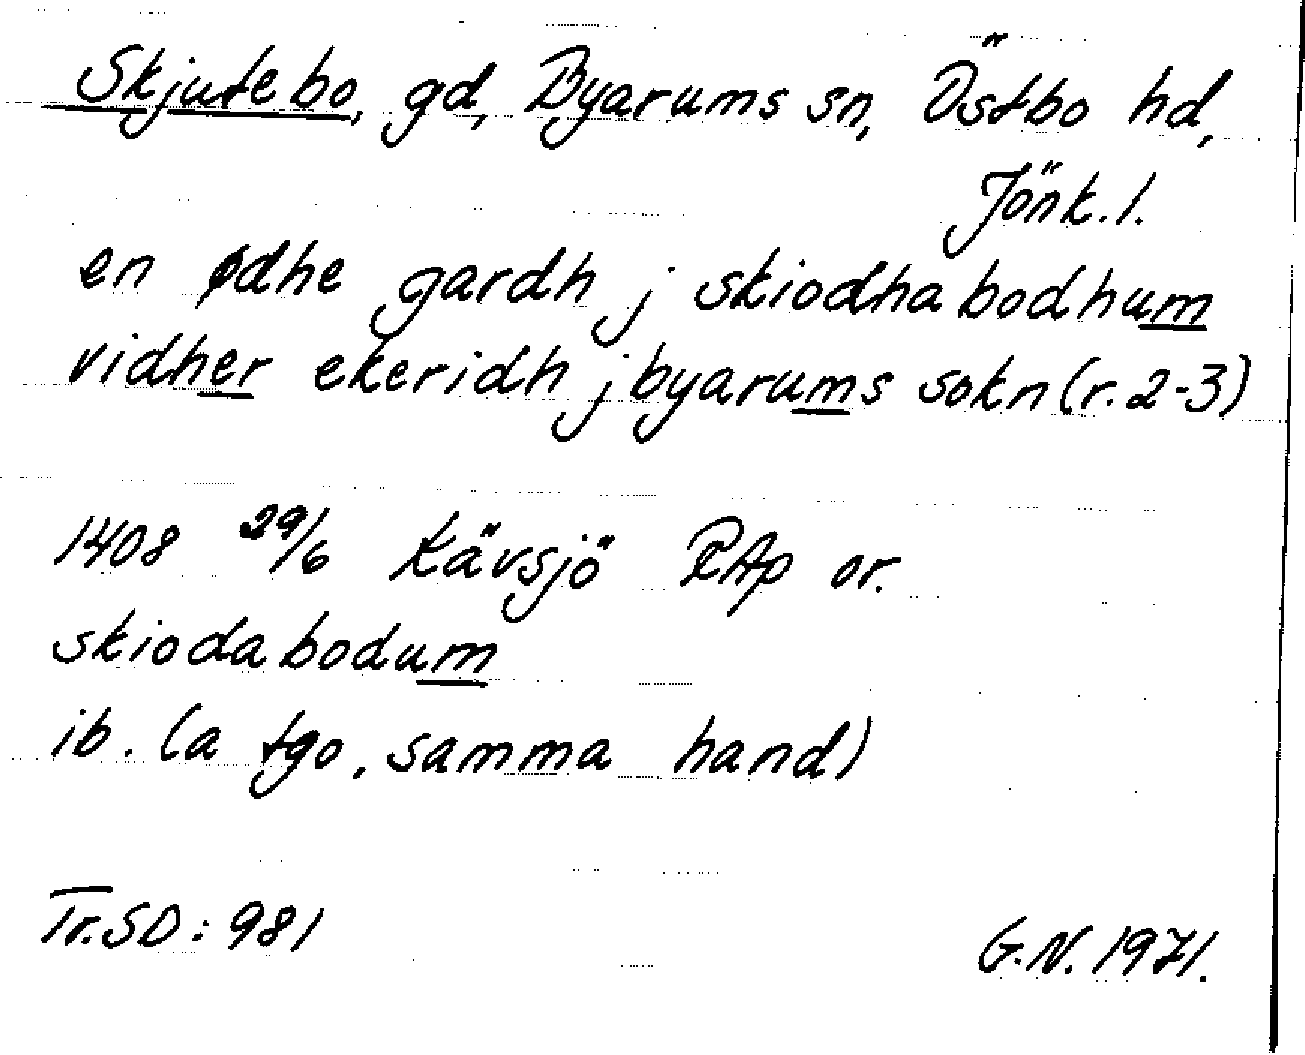 Skjutebo, gd, Byarums sn, Östbo hd,
Jönk. l.
en ødhe gardh j skiodhabodhum
vidher ekeridh j byarums sokn (r. 2-3)
1408 29/6 Kävsjö RAp or.
skiodabodum
ib. (a tgo, samma hand)
Tr. SD: 981
G.N. 1971.